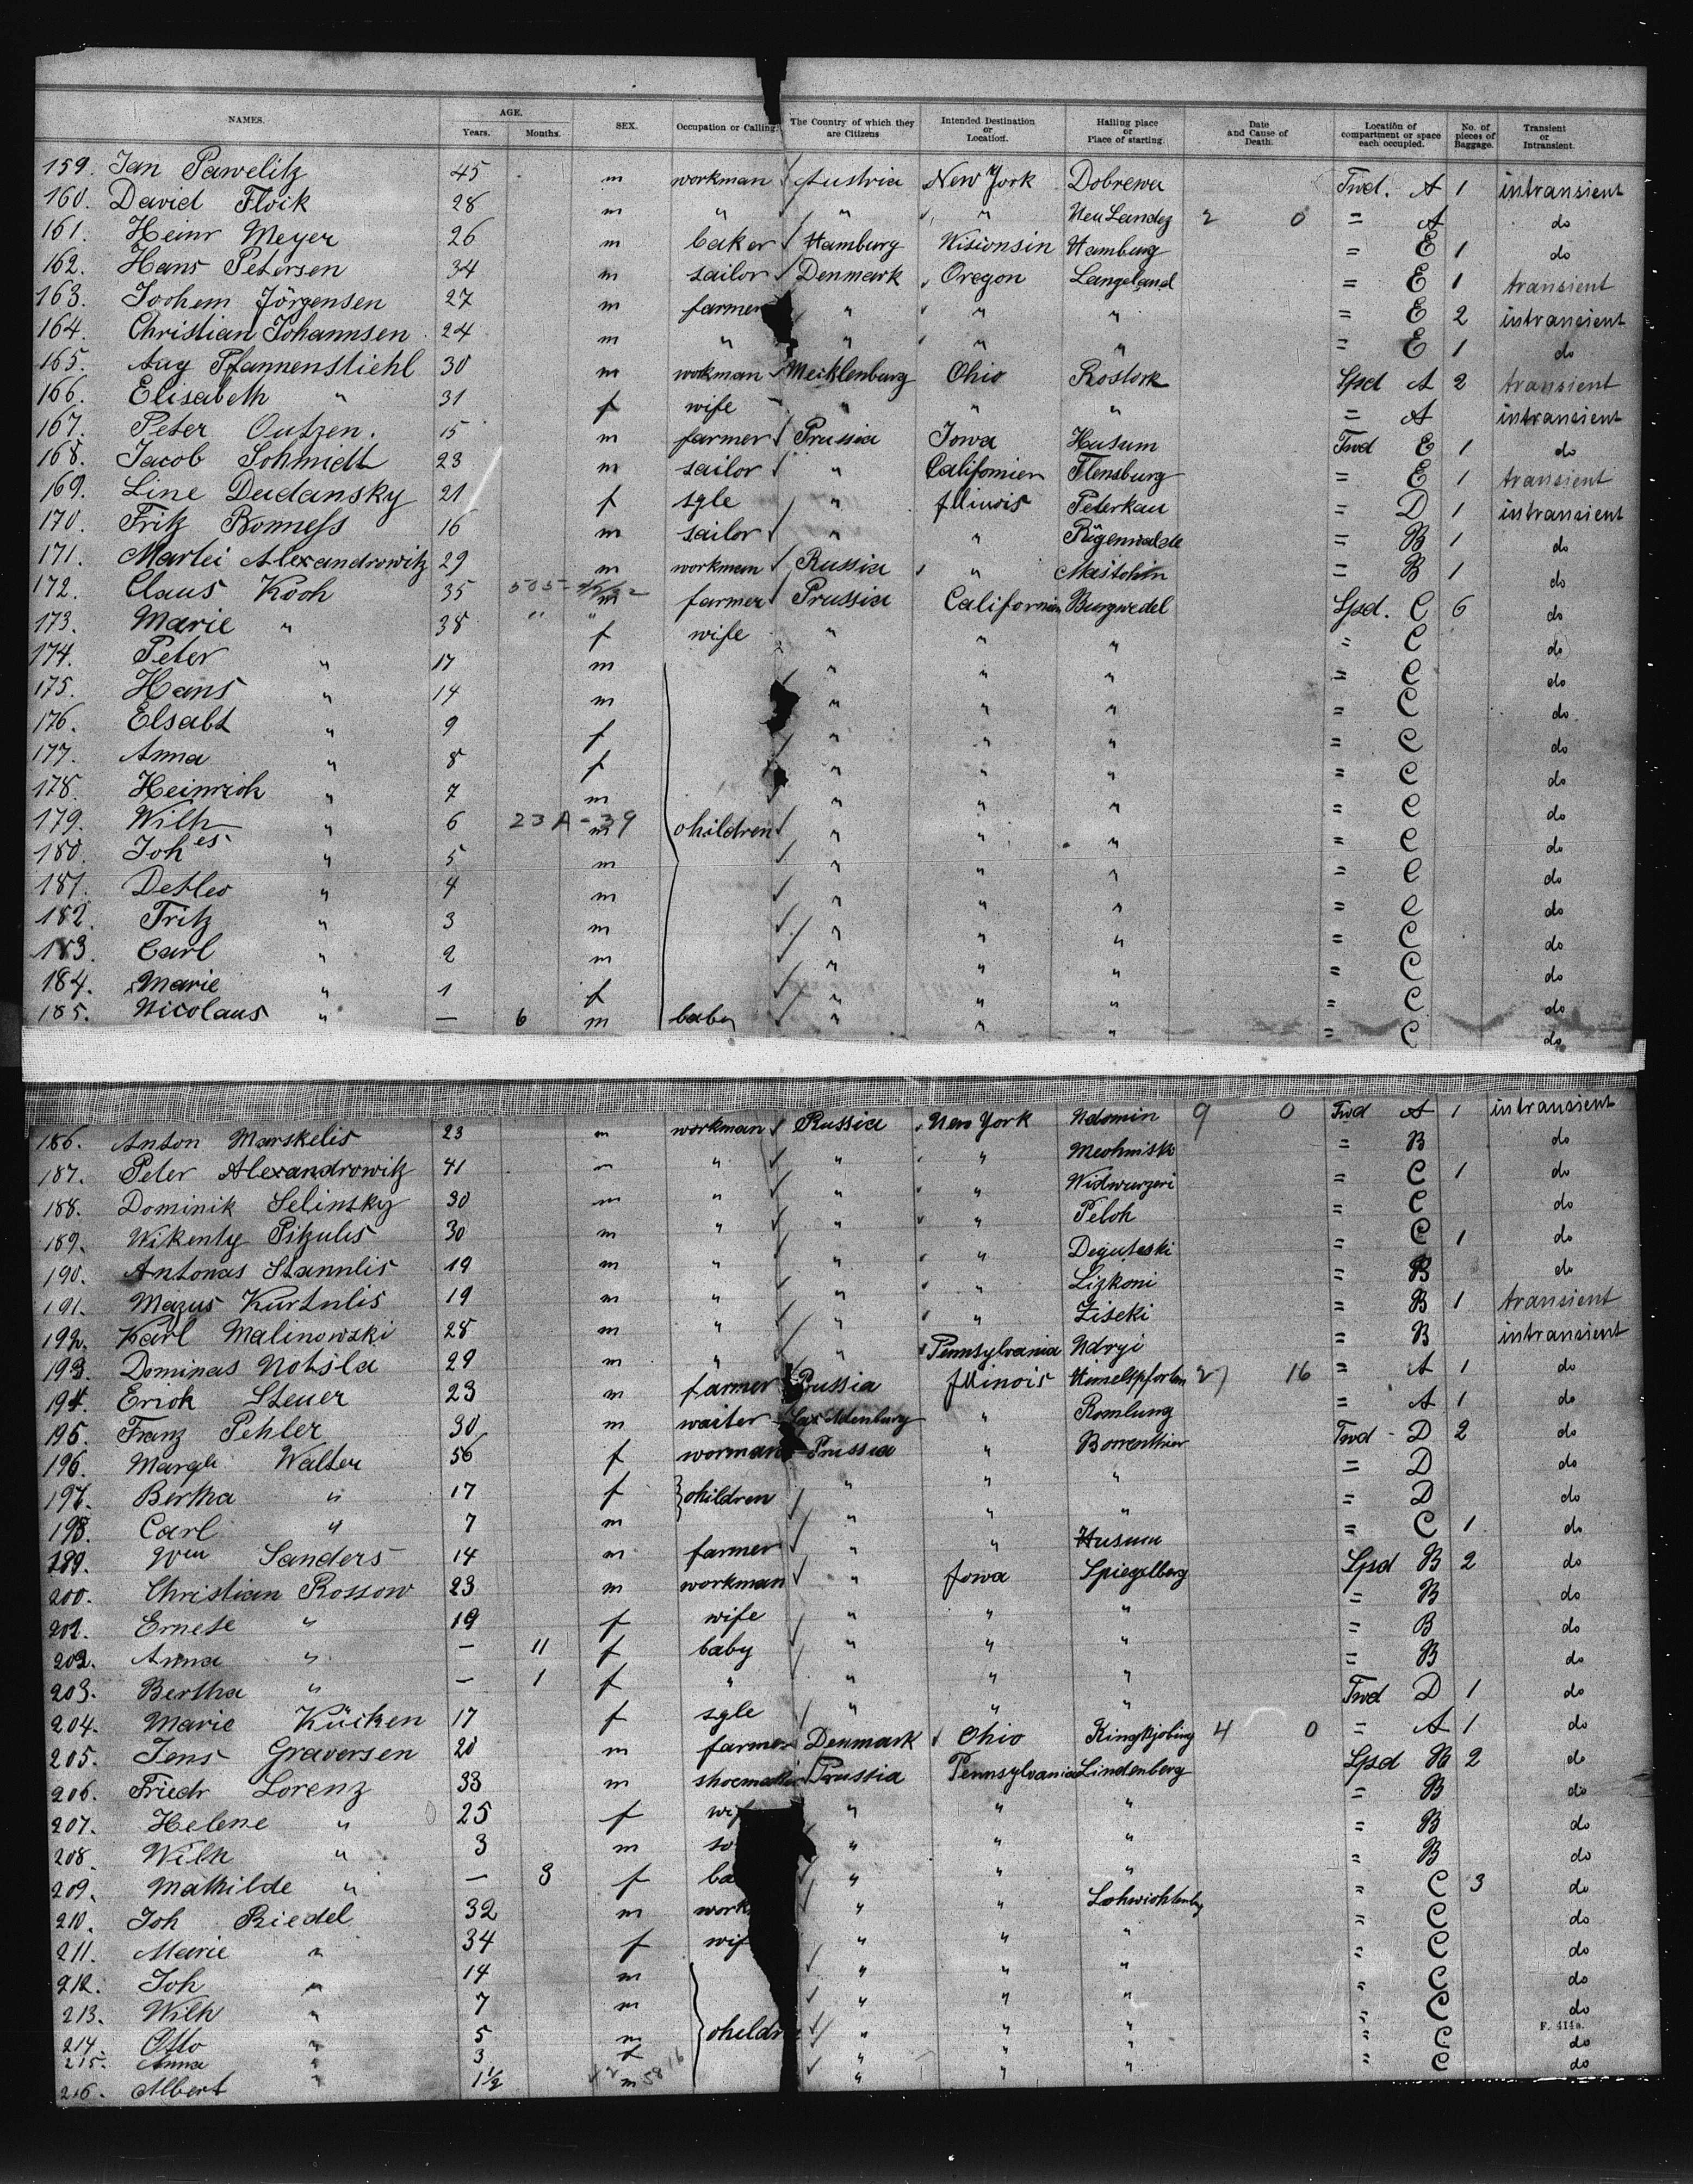 NAMES. AGE. Years. Months. SEX. Occupation or Calling. The Country of which they are Citizens Intended Destination or Location. Hailing place or Place of starting Date and Cause of Death. Location of compartment or space each occupied. No. of pieces of Baggage. Transient or Intransient.
159. Jan Pawelitz 45 m workman Austria New York Dobrewa Twd. A 1 intransient
160. David Flöik 28 m " " " Neu Landez 2 0 = A do
161. Heinr Meyer 26 m baker Hamburg Wisionsin Hamburg = E 1 do
162. Hans Petersen 34 m sailor Denmark Oregon Langeland = E 1 transient
163. Jochem Jörgensen 27 m farmer " " " = E 2 intransient
164. Christian Johannsen 24 m " " " " = E 1 do
165. Aug Pfannenstiehl 30 m workman Mecklenburg Ohio Rostock Spd A 2 transient
166. Elisabeth " 31 f wife " " " = A intransient
167. Peter Outzen. 15 m farmer Prussia Iowa Husum Twd E 1 do
168. Jacob Schmidt 23 m sailor " Californien Flensburg = E 1 transient
169. Line Dudansky 21 f sgle " Illinois Peterkau = D 1 intransient
170. Fritz Ronness 16 m sailor " " Rügenwalde = B 1 do
171. Martei Alexandrowitz 29 m workman Russia " = B 1 do
172. Claus Koch 35 m farmer Prussia Californien Burgwedel Spd. C 6 do
173. Marie " 38 " " f wife " " " = C do
174. Peter " 17 m " " " = C do
175. Hans " 14 m " " " = C do
176. Elsabt " 9 f " " " = C do
177. Anna " 8 f " " " = C do
178. Heinrich " 7 m " " " = C do
179. Wilh " 6 23 A - 39 m children " " " = C do
180. Johes " 5 m " " " = C do
181. Detlev " 4 m " " " = C do
182. Fritz " 3 m " " " = C do
183. Carl " 2 m " " " = C do
184. Marie " 1 f " " " = C do
185. Nicolaus " — 6 m baby " " " = C do
186. Anton Marskelis 23 m workman Russia New York Ndomin 9 0 Twd A 1 intransient
187. Peter Alexandrowitz 41 m " " " Mechnisk = B do
188. Dominik Selinsky 30 m " " " Widwurzeri = C 1 do
189. Wikenty Pitzulis 30 m " " " Peloh = C do
190. Antonas Stannlis 19 m " " " Deguteski = C 1 do
191. Mazus Kurtulis 19 m " " " Lizkoni = B do
192. Karl Malinowski 28 m " " " Ziseki = B 1 transient
193. Dominas Notsla 29 m " " Pennsylvania Ndryi = B intransient
194. Erick Steuer 23 m farmer Prussia Illinois Himelspforten 27 16 = A 1 do
195. Franz Pehler 30 m waiter Sax Altenburg " Romlung = A 1 do
196. Margh Walter 56 f worman Prussia " Twd - D 2 do
197. Bertha " 17 f children " " " = D do
198. Carl " 7 m " " " = D do
199. Wm Sanders 14 m farmer " " Husum = C 1 do
200. Christian Rossow 23 m workman " Iowa Spiegelberg Spd B 2 do
201. Ernese " 19 f wife " " " = B do
202. Anna " — 11 f baby " " " = B do
203. Bertha " — 1 f " " " " = B do
204. Marie Kücken 17 f sgle " " " Twd D 1 do
205. Jens Graversen 20 m farmer Denmark Ohio Ringkjobing 4 0 = A 1 do
206. Friedr Lorenz 33 m shoemaker Prussia Pennsylvania Lindenberg Spd B 2 do
207. Helene " 25 f wif " " " = B do
208. Wilh " 3 m so " " " = B do
209. Mathilde " — 3 f ba " " " = B do
210. Joh Riedel 32 m work " " = C 3 do
211. Marie " 34 f wif " " " = C do
212. Joh " 14 m " " " = C do
213. Wilh " 7 m " " " = C do
214. Otto " 5 m childr " " " = C do
215. Anna " 3 f " " " = C do
216. Albert " 1½ m " " " = C do
F. 414a.